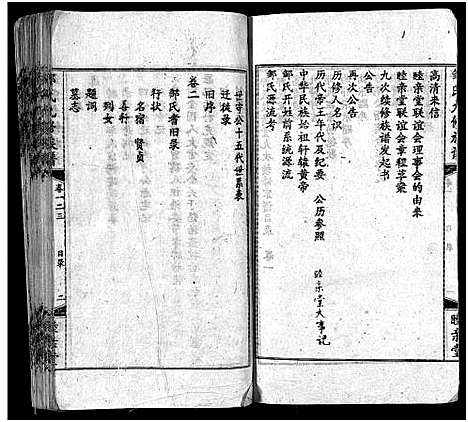 高清来信
睦亲堂联谊会理事会的由来
睦亲堂联谊会章程草案
九次续修族谱发起书
公告
再次公告
历修人名识
历代帝王年代及纪要 公历参照 睦亲堂大事记
中华民族始祖轩辕黄帝
邹氏开姓前系统源流
邹氏源流考
睦亲堂
世守公十五代世系表
迁徙录
旧序
卷二
邹氏耆旧录
行状
名宦 贤贞
善行
列女
题词
墓志
卷一二三
目录
二